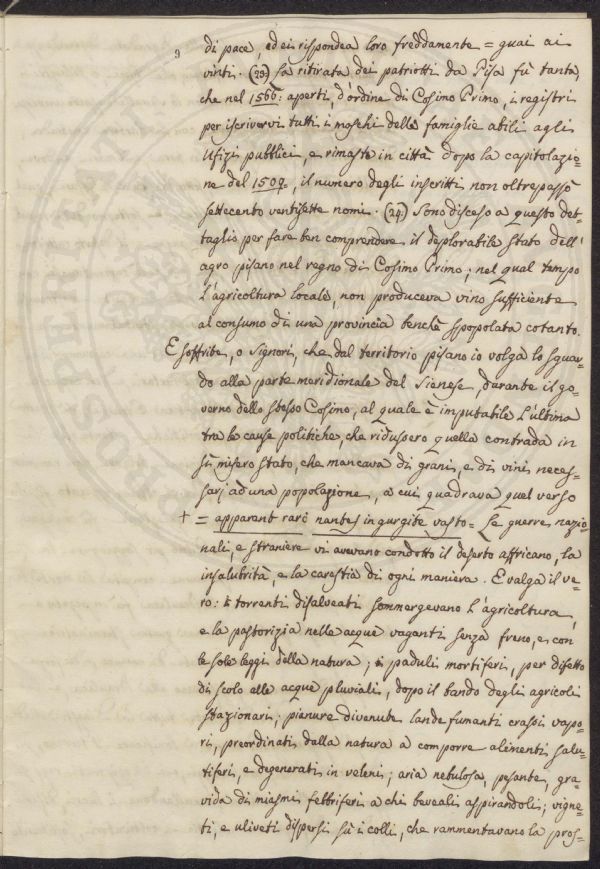 9
di pace, ed ei rispondea loro freddamente = guai ai
vinti. (23.) La ritirata dei patriotti da Pisa fù tanta,
che nel 1566. aperti, d'ordine di Cosimo Primo, i registri
per iscrivervi tutti i maschi delle famiglie abili agli
Ufizi pubblici, e rimaste in città dopo la capitolazio=
ne del 1509., il numero degli inscritti non oltrepassò
settecento ventisette nomi. (24.) Sono disceso a questo det=
taglio per fare ben comprendere il deplorabile stato dell'
agro pisano nel regno di Cosimo Primo; nel qual tempo
l'agricoltura locale, non produceva vino sufficiente
al consumo di una provincia benchè spopolata cotanto.
E soffrite, o Signori, che dal territorio pisano io volga lo sguar=
do alla parte meridionale del Sienese, durante il go=
verno dello stesso Cosimo, al quale è imputabile l'ultima
tra le cause politiche, che ridussero quella contrada in
sì misero stato, che mancava di grani, e di vini neces=
sarj ad una popolazione, a cui quadrava quel verso
+ = apparent rari nantes in gurgite vasto = Le guerre nazio=
nali, e straniere vi avevano condotto il deserto affricano, la
insalubrità, e la carestia di ogni maniera. E valga il ve=
ro: torrenti disalveati sommergevano l'agricoltura,
e la pastorizia nelle acque vaganti senza freno, e con
le sole leggi della natura; paduli mortiferi, per difetto
di scolo alle acque pluviali, dopo il bando degli agricoli
stazionari; pianure divenute lande fumanti crassi vapo=
ri, preordinati dalla natura a comporre alimenti salu=
tiferi, e degenerati in veleni; aria nebulosa, pesante, gra=
vida di miasmi febbriferi a chi beveali aspirandoli; vigne=
ti, e uliveti dispersi sù i colli, che rammentavano la pros=